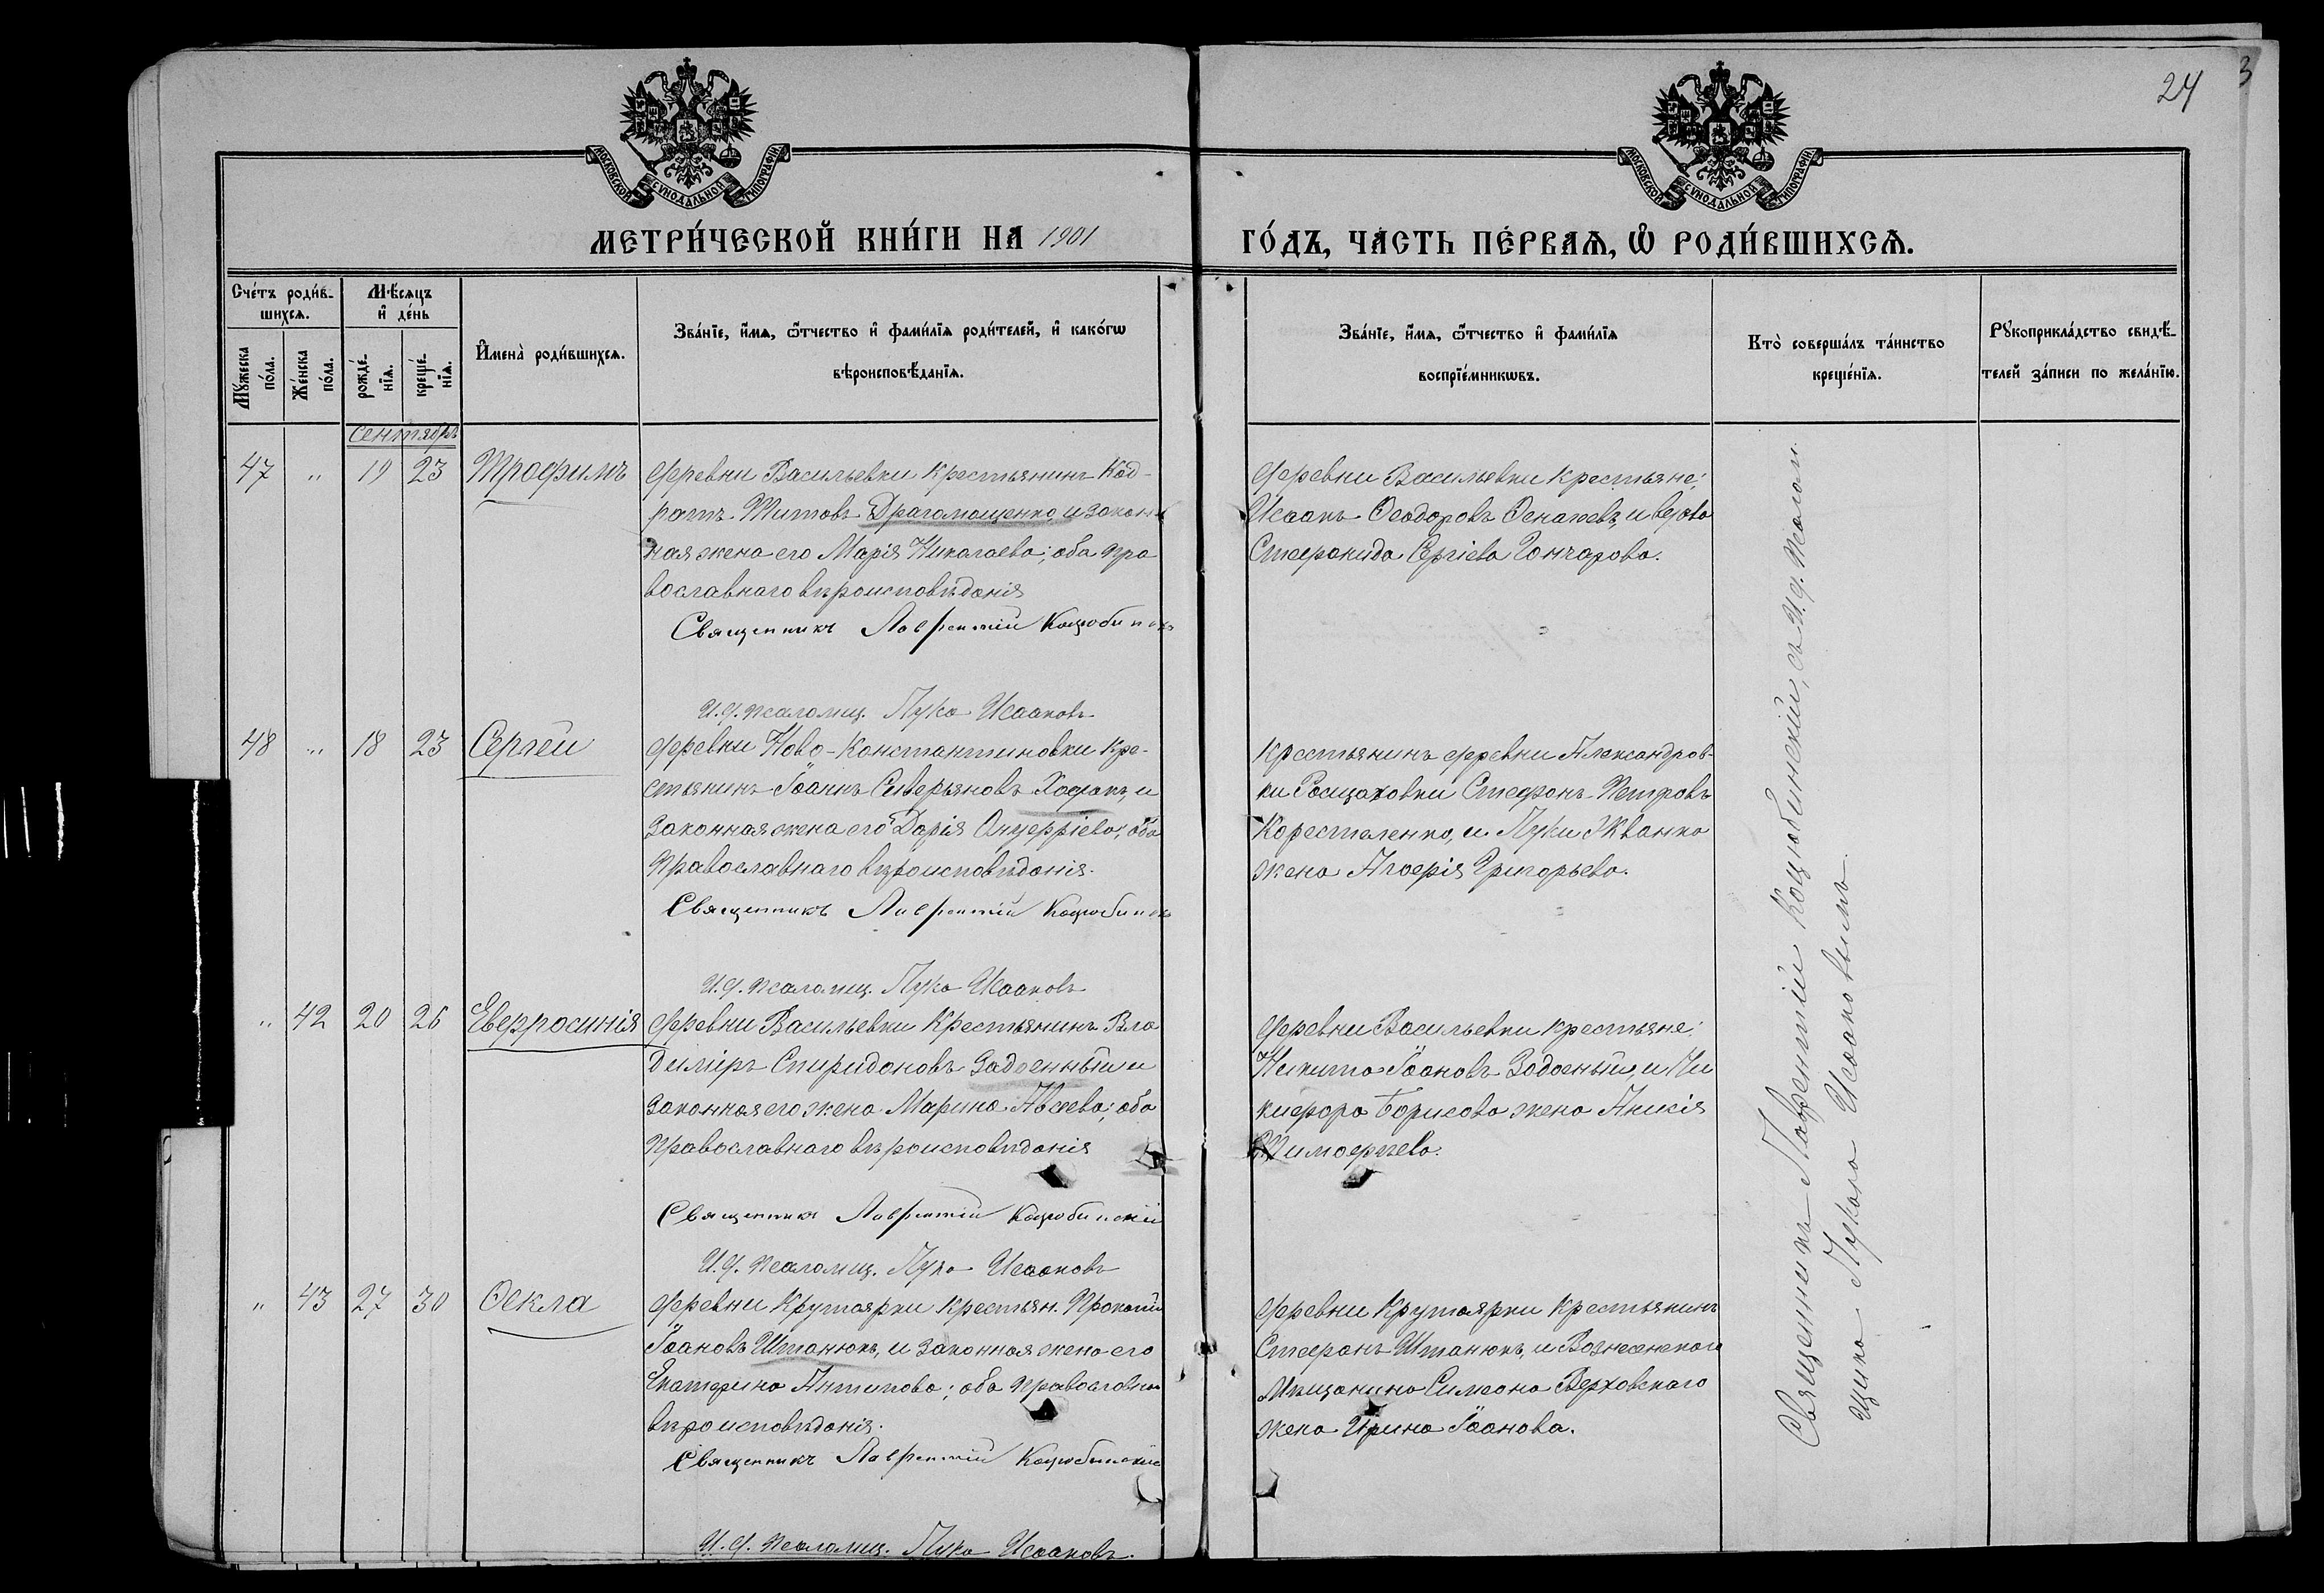 24
3
МОСКОВСКОЙ СѴНОДАЛЬНОЙ ТИПОГРАФІИ.
МОСКОВСКОЙ СѴНОДАЛЬНОЙ ТИПОГРАФІИ.
МЕТРИ́ЧЕСКОЙ КНИ́ГИ НА 1901
ГО́ДЪ, ЧА́СТЬ ПЕ́РВАѦ, Ѽ РОДИ́ВШИХСѦ.
Сче́тъ роди́в-
шихсѧ.
Мѣ́сѧцъ
и҆ де́нь
Мꙋ́жеска
по́ла.
Же́нска
по́ла.
рожде́-
нїѧ.
креще́-
нїѧ.
И҆мена̀ роди́вшихсѧ.
Зва́нїе, и҆́мѧ, ѻ҆́тчество и҆ фами́лїѧ роди́телей, и҆ како́гѡ
вѣроисповѣ́данїѧ.
Зва́нїе, и҆́мѧ, ѻ҆́тчество и҆ фами́лїѧ
воспрїе́мникѡвъ.
Кто̀ соверша́лъ та́инство
креще́нїѧ.
Рꙋкоприкла́дство свидѣ́-
телей за́писи по жела́нїю.
Сентябрь
47 " 19 23 Трофимъ
деревни Васильевки крестьянинъ Код-
ратъ Титовъ Драгомощенко, и закон-
ная жена его Марія Николаева; оба пра
вославнаго вѣроисповѣданія
Священникъ Лаврентій Коцюбинск
И. д. псаломщ. Лука Исааковъ
деревни Васильевки крестьяне:
Исаакъ Ѳеодоровъ и вдова
Стефанида Сергіева Гончарова.
48 " 18 23 Сергѣй
деревни Ново-Константиновки кре-
стьянинъ Іоаннъ Северьяновъ Ходакъ, и
законная жена его Дарія Онуфріева; оба
православнаго вѣроисповѣданія.
Священникъ Лаврентій Коцюбинск
И. д. псаломщ. Лука Исааковъ
крестьянинъ деревни Александров-
ки Стефанъ Петровъ
и Луки Жванко
жена Григорьева.
" 42 20 26 Евфросинія
деревни Васильевки крестьянинъ Вла
диміръ Спиридоновъ Задоенный и
законная его жена Марина Авсеева; оба
православнаго вѣроисповѣданія
Священникъ Лаврентій Коцюбинскій
И. д. псаломщ. Лука Исааковъ
деревни Васильевки крестьяне:
Никита Іоановъ Задоеный, и Ни
кифора Борисова жена Анисія
Тимофѣева.
" 43 27 30 Ѳекла
деревни Крутоярки крестьян. Прокопій
Іоановъ Штанюкъ, и законная жена его
Екатерина Антипова; оба православнаго
вѣроисповѣданія.
Священникъ Лаврентій Коцюбинскій
И. д. псаломщ. Лука Исааковъ.
деревни Крутоярки крестьянинъ
Стефанъ Штанюкъ, и Вознесенскаго
мѣщанина Симеона Верховскаго
жена Ирина Іоанова.
Священникъ Лаврентій Коцюбинскій, съ И. д. псалом
щика Лукою Исааковымъ.